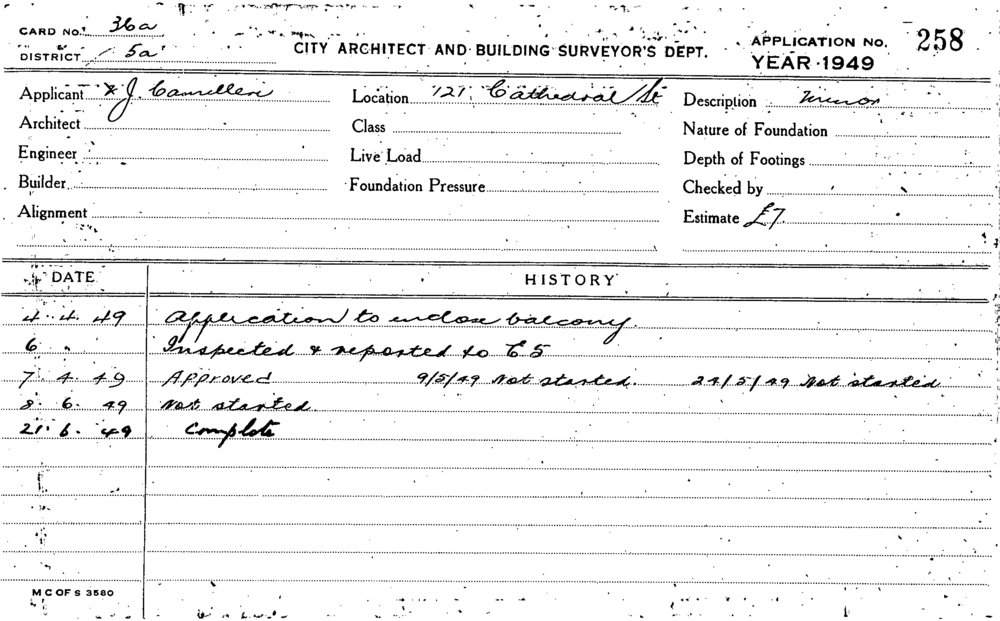 CARD NO. 36a
DISTRICT 5a
CITY ARCHITECT AND BUILDING SURVEYOR'S DEPT.
APPLICATION NO. 258
YEAR 1949
Applicant J. Camilleri Location 121 Cathedral St Description Minor
Architect Class Nature of Foundation
Engineer Live Load Depth of Footings
Builder Foundation Pressure Checked by
Alignment Estimate £7
DATE HISTORY
4. 4. 49 Application to enclose balcony.
6 " Inspected & reported to E5
7 4 49 Approved 9/5/49 Not started. 24/5/49 Not started
8. 6. 49 Not started.
21. 6. 49 Complete
M C OF S 3580